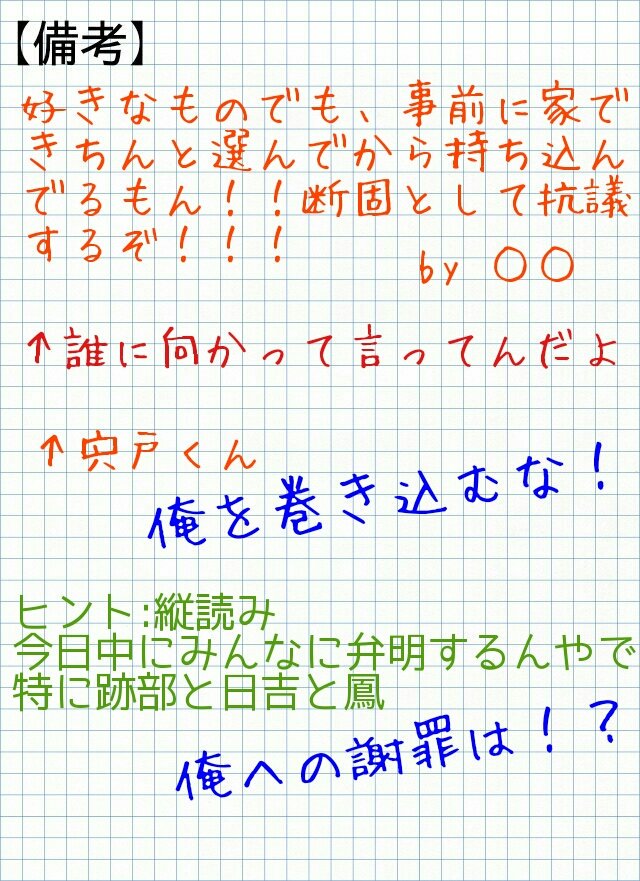 【備考】
好きなものでも、事前に家で
きちんと選んでから持ち込ん
でるもん！！断固として抗議
するぞ！！！
by 〇〇
↑誰に向かって言ってんだよ
↑宍戸くん
俺を巻き込むな！
ヒント:縦読み
今日中にみんなに弁明するんやで
特に跡部と日吉と鳳
俺への謝罪は！？